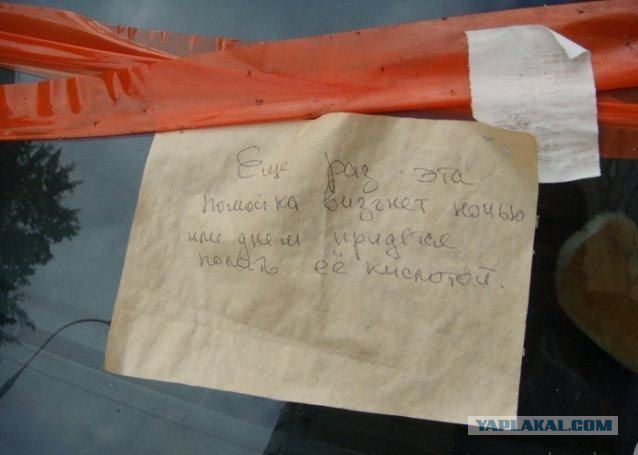 Еще раз эта
помойка визгнет ночью
или днем придется
полить её кислотой.
YAPLAKAL.COM